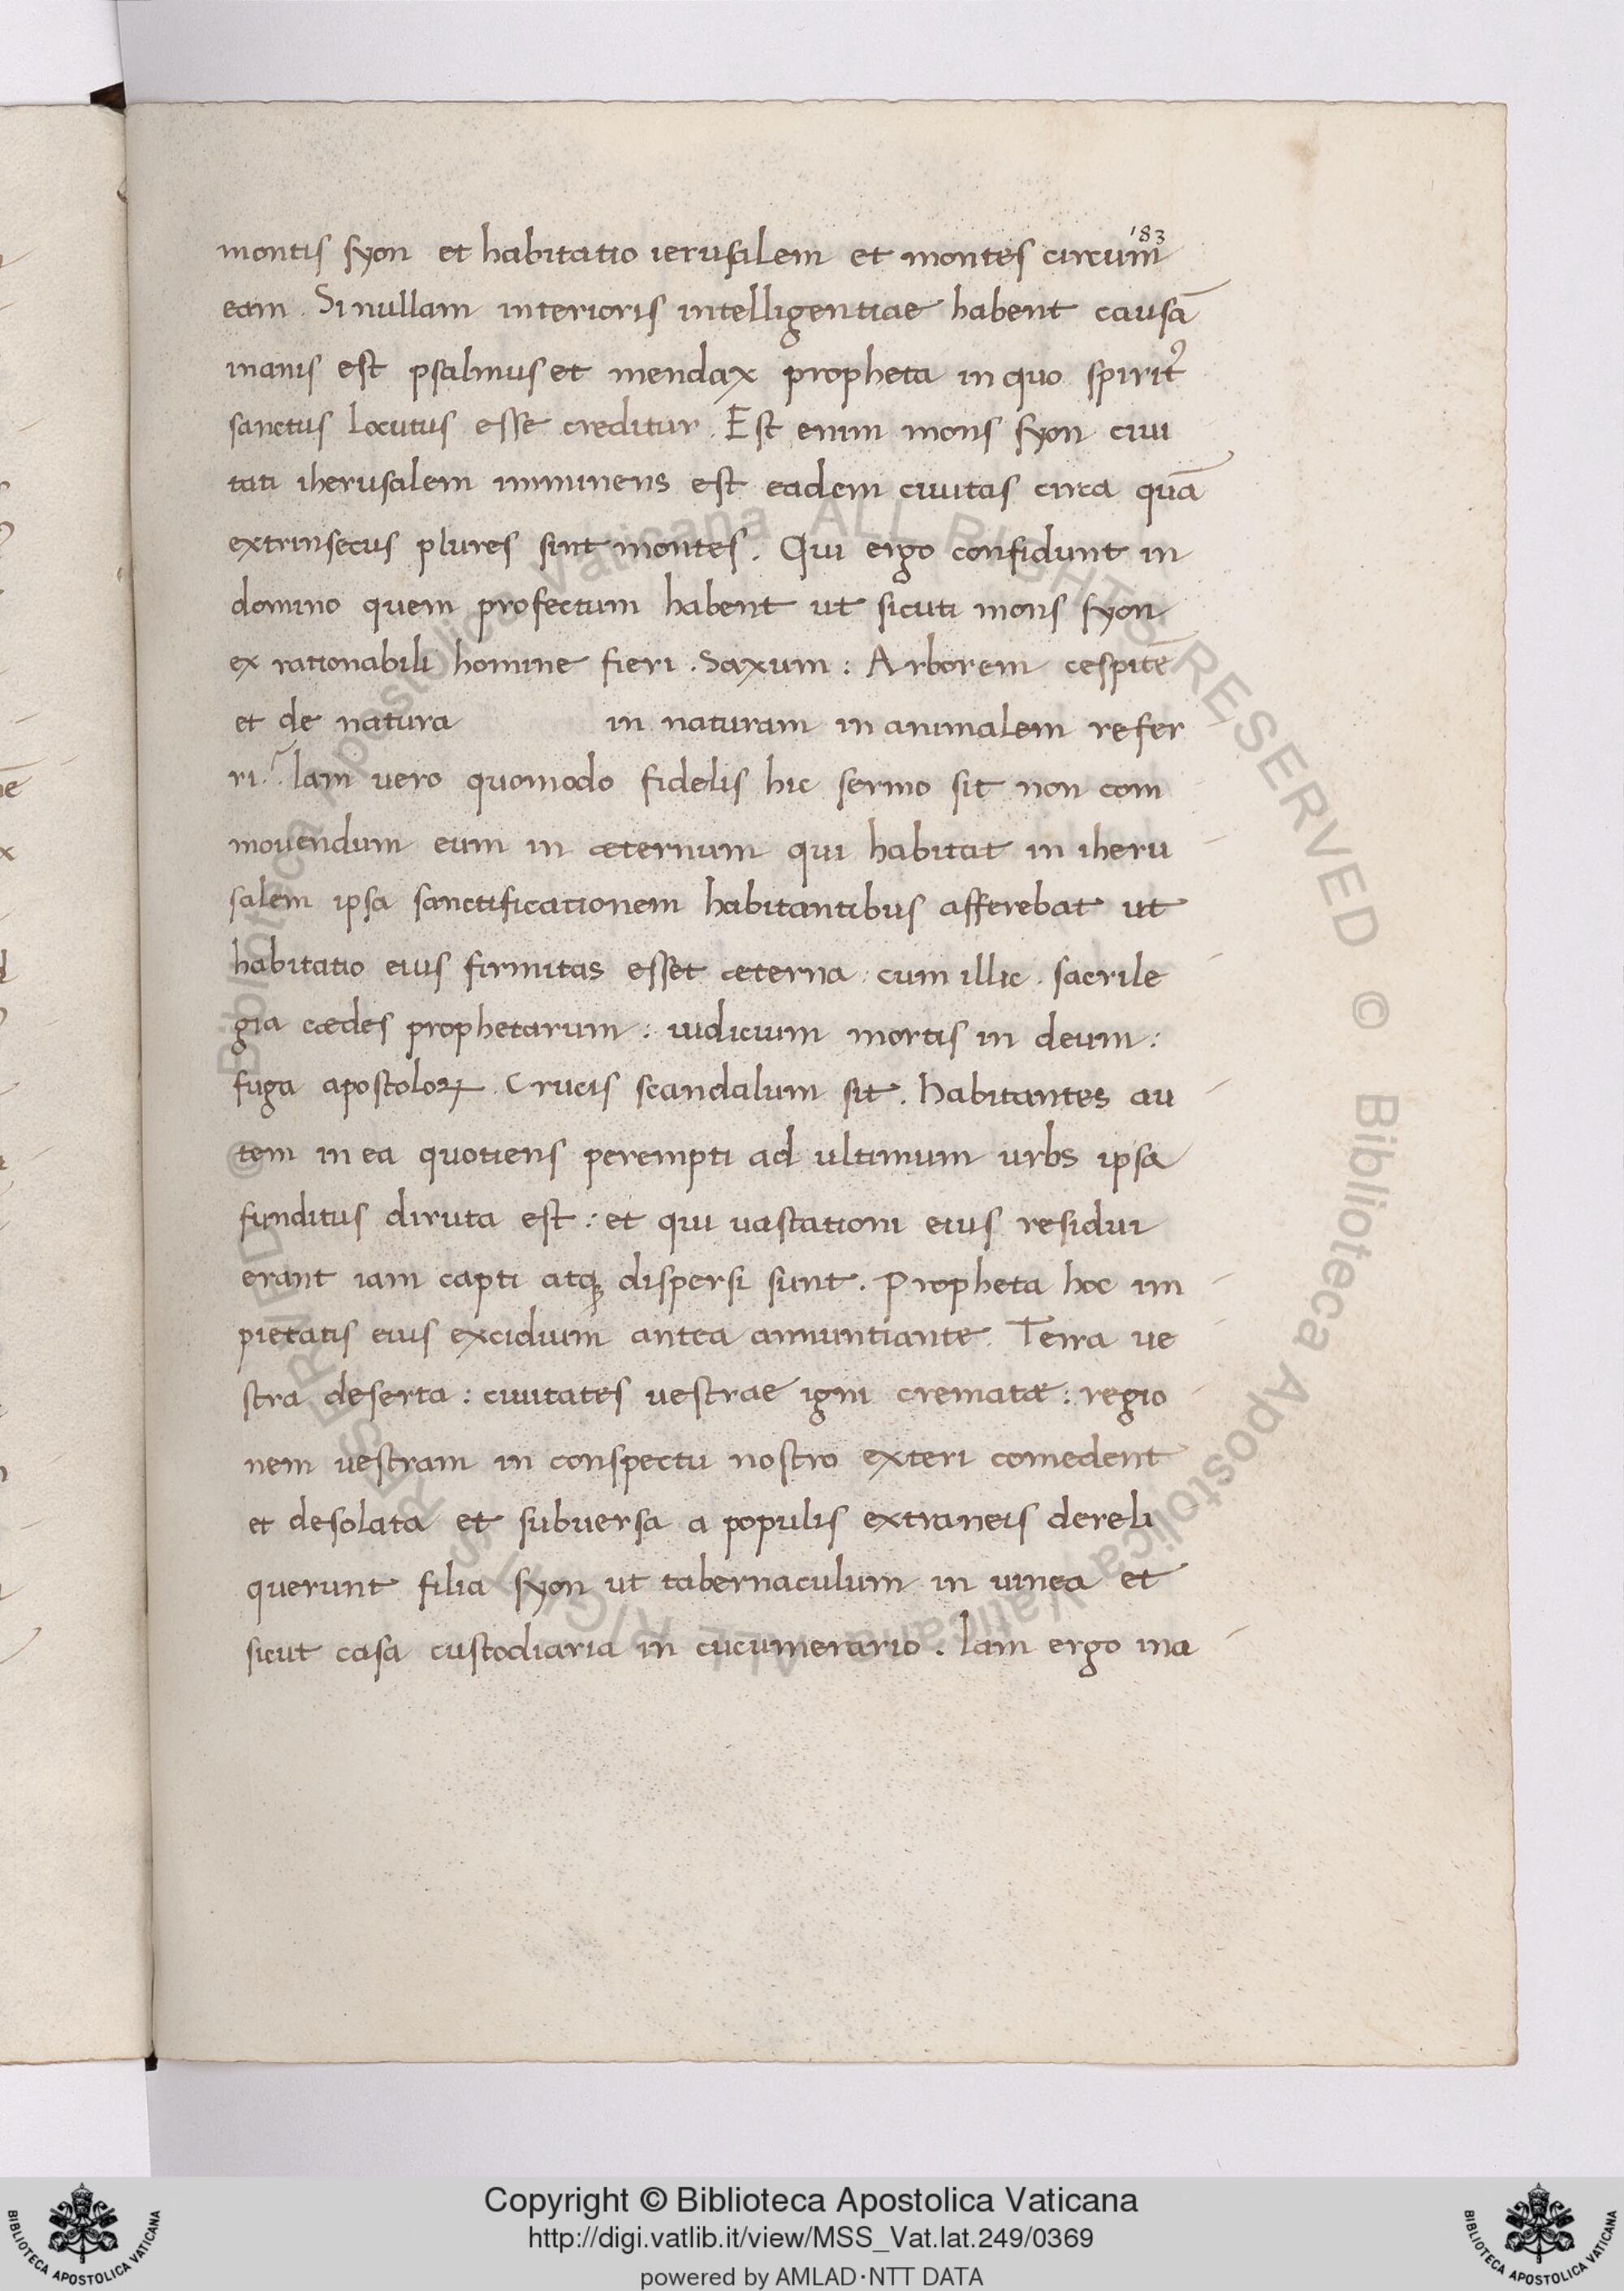 183
montis syon et habitatio ierusalem et montes circum
eam. Si nullam interioris intelligentiae habent causā
inanis est psalmus et mendax propheta in quo spirit᾿
sanctus locutus esse creditur. Est enim mons syon ciui
tati iherusalem imminens est eadem ciuitas circa quā
extrinsecus plures sint montes. Qui ergo confidunt in
domino quem profectum habent ut sicuti mons syon
ex rationabili homine fieri. Saxum: Arborem cespitē
et de natura in naturam in animalem refer
ri? Iam vero quomodo fidelis hic sermo sit non com
mouendum eum in æternum qui habitat in iheru
salem ipsa sanctificationem habitantibus afferebat ut
habitatio eius firmitas esset æterna: cum illic. sacrile
gia cædes prophetarum: iudicium mortis in deum:
fuga apostoloꝝ. Crucis scandalum sit. habitantes au
tem in ea quotiens perempti ad ultimum urbs ipsa
funditus diruta est: et qui uastationi eius residui
erant iam capti atqꝫ dispersi sunt. Propheta hoc im
pietatis eius excidium antea annuntiante. Terra ue
stra deserta: ciuitates uestrae igni crematæ: regio
nem uestram in conspectu nostro exteri comedent
et desolata et subuersa a populis extraneis dereli
querunt filia syon ut tabernaculum in uinea et
sicut casa custodiaria in cucumerario. Iam ergo ina
Copyright © Biblioteca Apostolica Vaticana
http://digi.vatlib.it/view/MSS_Vat.lat.249/0369
powered by AMLAD·NTT DATA
BIBLIOTECA APOSTOLICA VATICANA
BIBLIOTECA APOSTOLICA VATICANA
© Biblioteca Apostolica Vaticana ALL RIGHTS RESERVED © Biblioteca Apostolica Vaticana ALL RIGHTS RESERVED